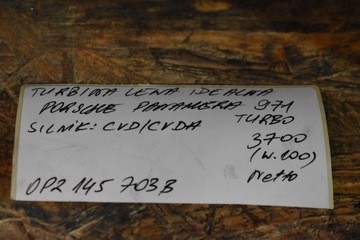 TURBINA LEWA IDEALNA
PORSCHE PANAMERA 971
TURBO
SILNIK: CVD/CVDA
3700
(W.100)
Netto
0P2 145 703B